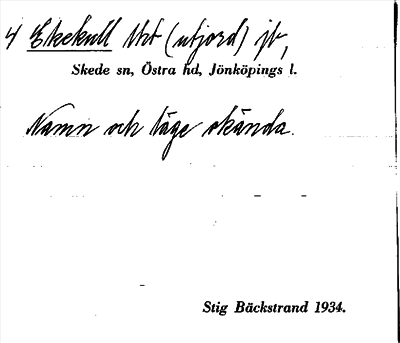 4 Ekekull Urt (utjord) jb,
Skede sn, Östra hd, Jönköpings l.
Namn och läge okända.
Stig Bäckstrand 1934.